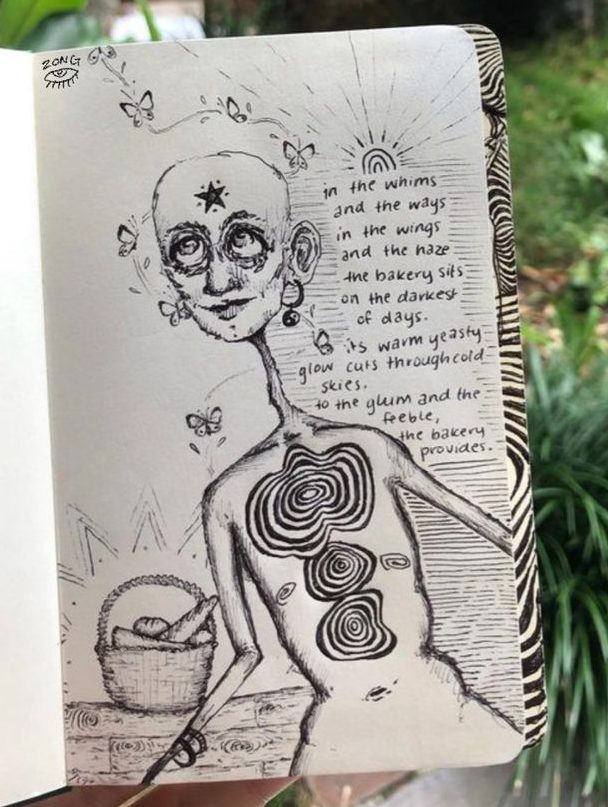 ZONG
in the whims
and the ways
in the wings
and the haze
the bakery sits
on the darkest
of days.
its warm yeasty
glow cuts through cold
skies.
to the glum and the
feeble,
the bakery
provides.